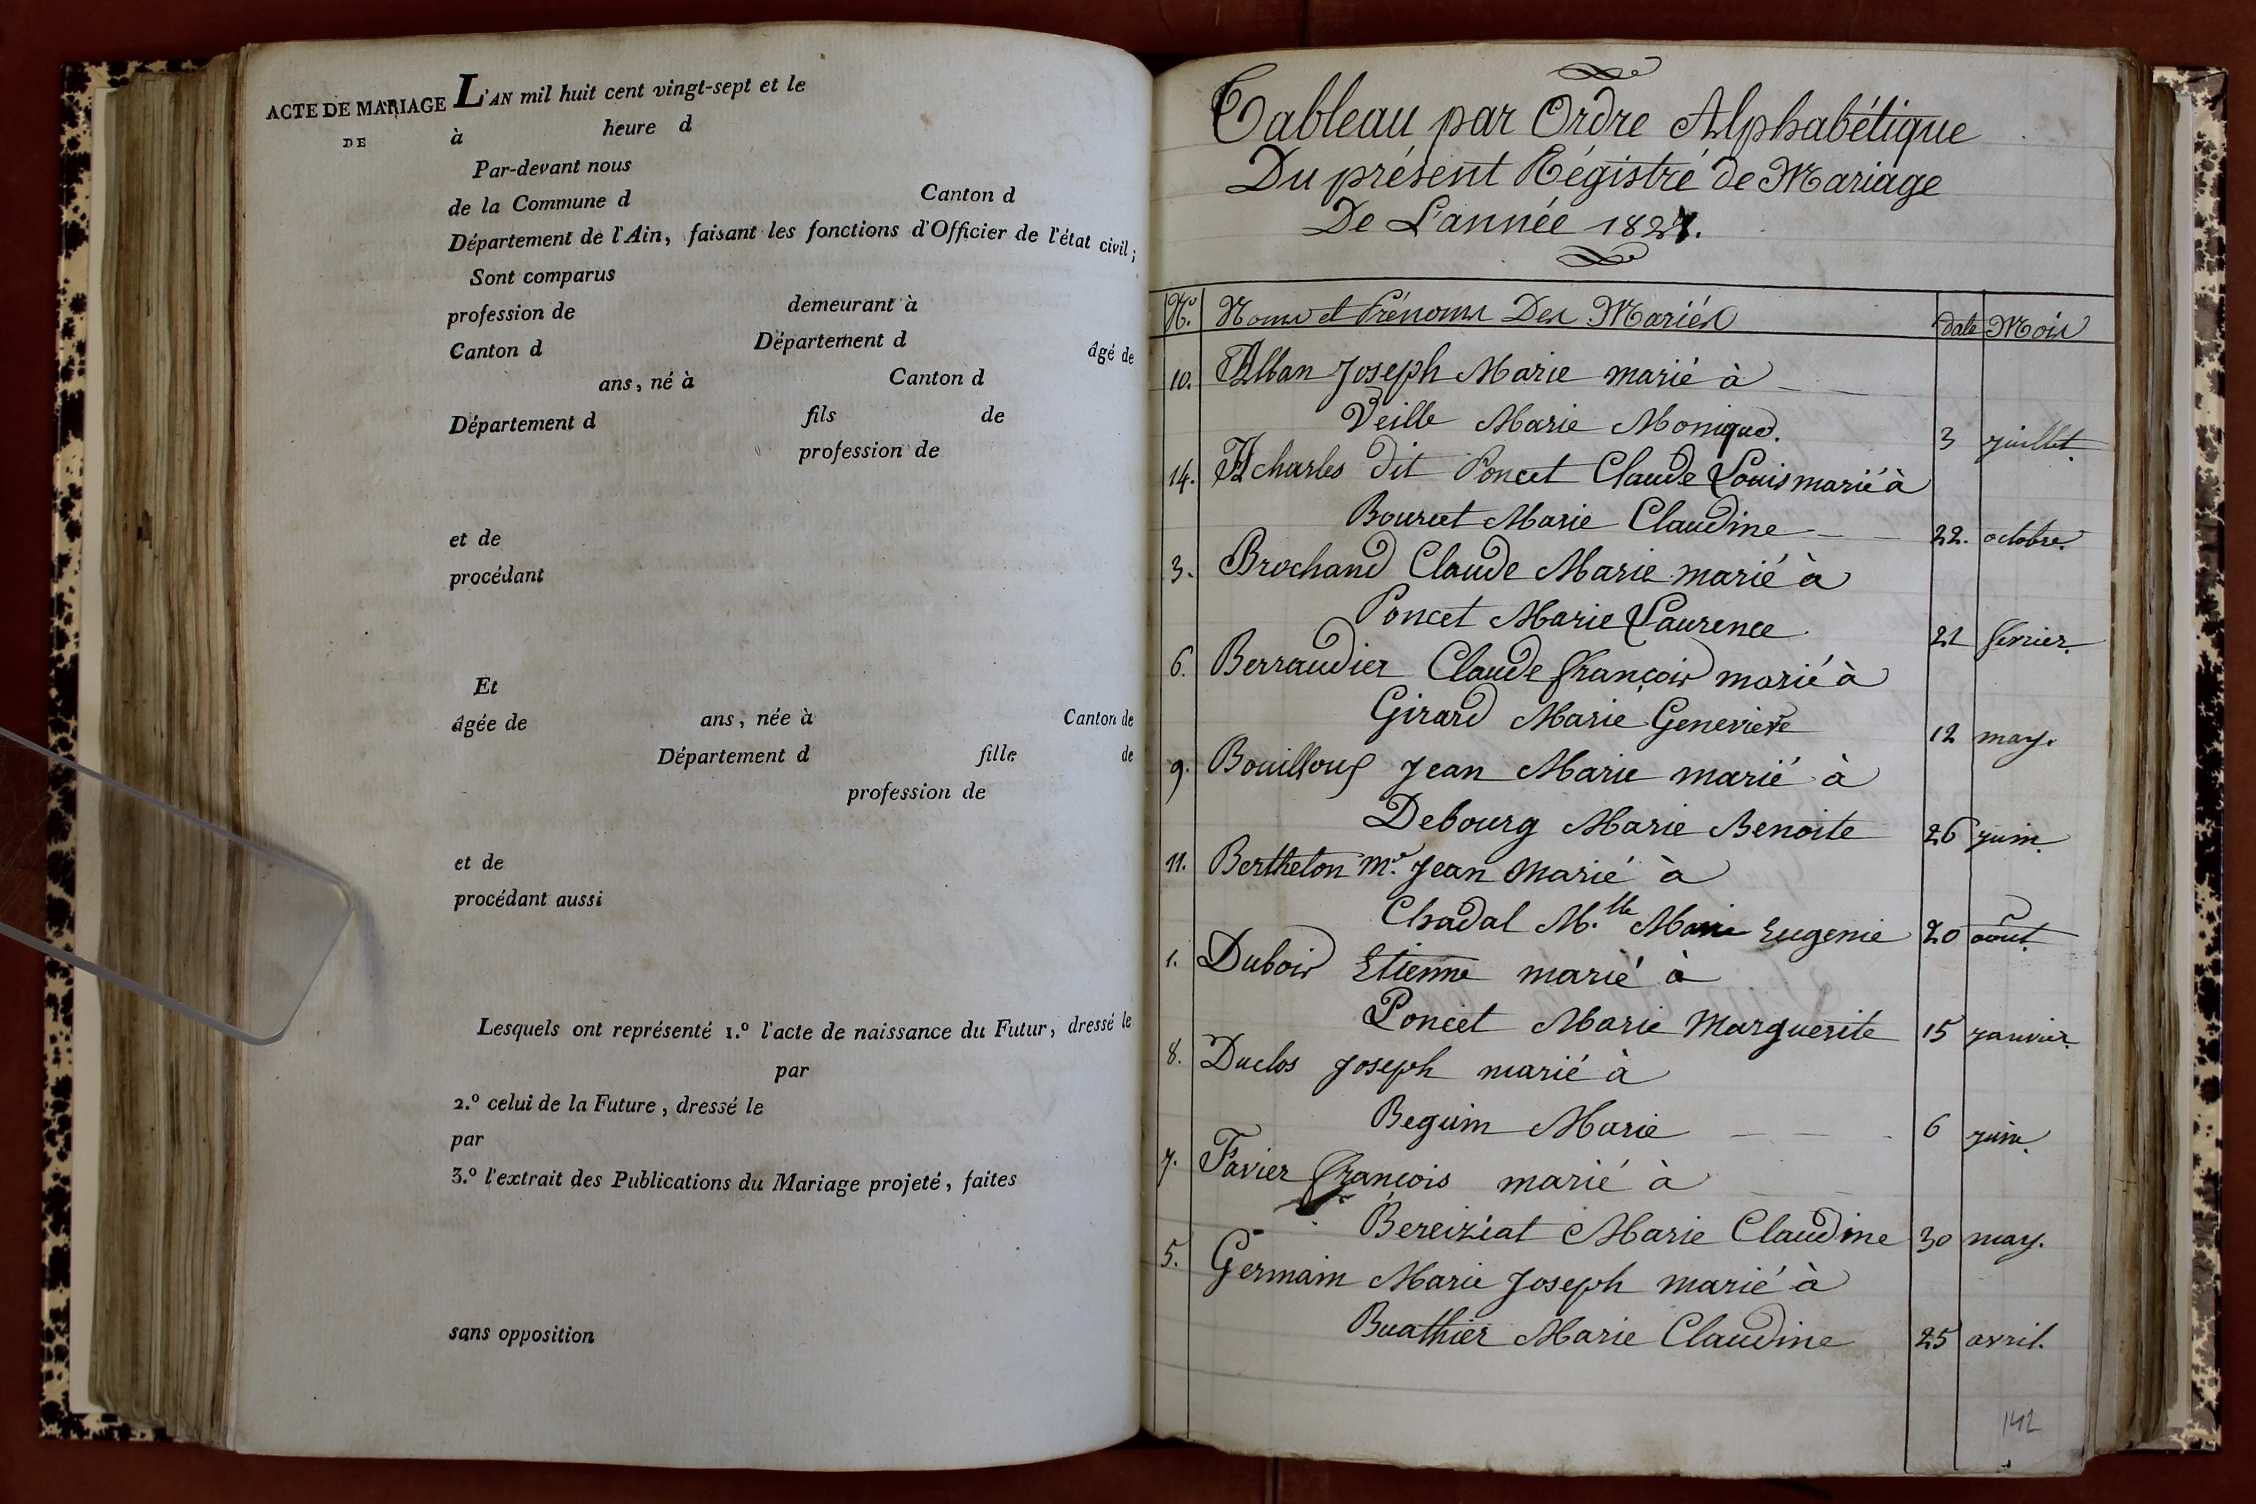 ACTE DE MARIAGE
DE
L'AN mil huit cent vingt-sept et le
à heure d
Par-devant nous
de la Commune d Canton d
Département de l'Ain, faisant les fonctions d'Officier de l'état civil;
Sont comparus
profession de demeurant à
Canton d Département d âgé de
ans, né à Canton d
Département d fils de
profession de
et de
procédant
Et
âgée de ans, née à Canton de
Département d fille de
profession de
et de
procédant aussi
Lesquels ont représenté 1.º l'acte de naissance du Futur, dressé le
par
2.º celui de la Future, dressé le
par
3.º l'extrait des Publications du Mariage projeté, faites
sans opposition
Tableau par Ordre Alphabétique
Du présent Régistré de Mariage
De L'année 1827.
N.º Noms et Prénoms Des Mariés date Mois
10. Alban Joseph Marie marié à
Veille Marie Monique. 3 juillet.
14. Acharles dit Poncet Claude Louis marié à
Bourcet Marie Claudine 22. octobre.
3. Brochand Claude Marie marié à
Poncet Marie Laurence 21 fevrier.
6. Berraudier Claude françois marié à
Girard Marie Genevieve 12 may.
9. Bouilloux Jean Marie marié à
Debourg Marie Benoite 26 juin.
11. Berthelon M.r Jean Marié à
Chadal M.lle Marie Eugenie 20 août.
1. Dubois Etienne marié à
Poncet Marie Marguerite 15 janvier.
8. Duclos Joseph marié à
Beguin Marie 6 juin.
7. Favier françois marié à
Bereiziat Marie Claudine 30 may.
5. Germain Marie Joseph marié à
Buathier Marie Claudine 25 avril.
142